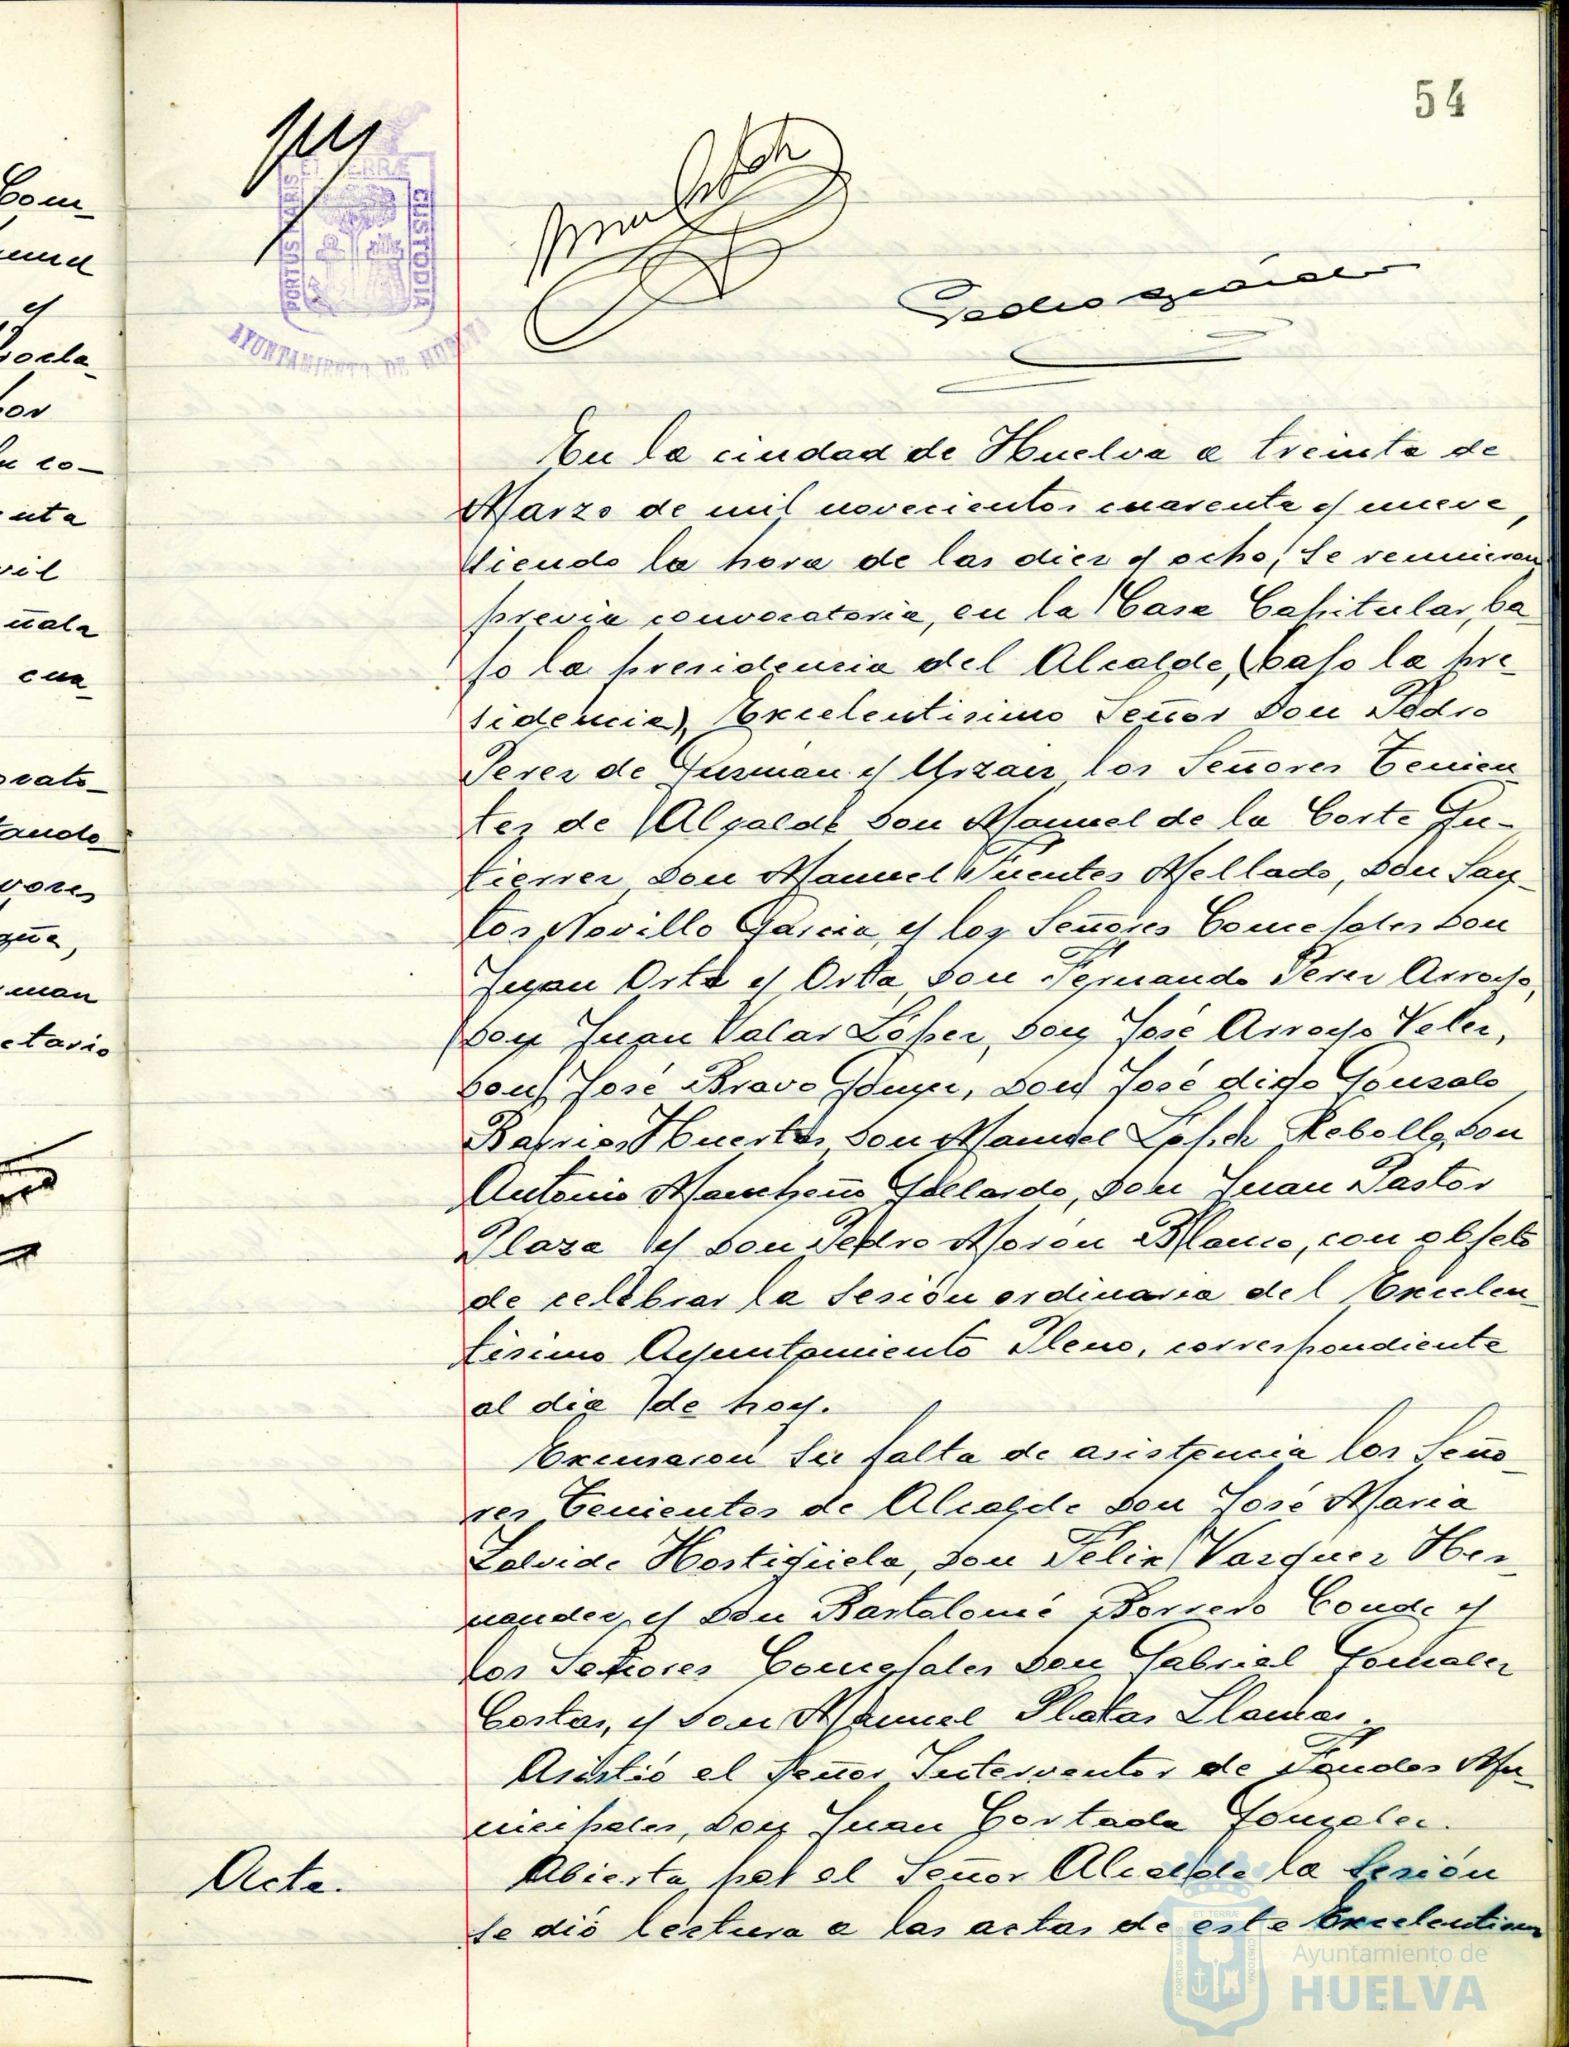 54
PORTUS MARIS
ET TERRÆ
CUSTODIA
AYUNTAMIENTO DE HUELVA
En la ciudad de Huelva a treinta de
Marzo de mil novecientos cuarenta y nueve,
siendo la hora de las diez y ocho, se reunieron
previa convocatoria, en la Casa Capitular, ba-
jo la presidencia del Alcalde, (bajo la pre-
sidencia), Excelentisimo Señor Don Pedro
Perez de Guzmán y Urzaiz, los Señores Tenien-
tes de Alcalde Don Manuel de la Corte Gu-
tierrez, Don Manuel Fuentes Mellado, Don San-
tos Novillo Garcia, y los Señores Concejales Don
Juan Orta y Orta, Don Fernando Perez Arroyo,
Don Juan Valar López, Don José Arroyo Velez,
Don José Bravo Gomez, Don José digo Gonzalo
Barrios Huertas, Don Manuel López Rebollo, Don
Antonio Mancheño Gallardo, Don Juan Pastor
Plaza y Don Pedro Morón Blanco, con objeto
de celebrar la sesión ordinaria del Excelen-
tisimo Ayuntamiento Pleno, correspondiente
al dia de hoy.
Excusaron su falta de asistencia los Seño-
res Tenientes de Alcalde Don José Maria
Zalvide Hostigüela, Don Felix Vazquez Her-
nandez, y Don Bartolomé Borrero Conde y
los Señores Concejales Don Gabriel Gonzalez
Costas, y Don Manuel Platas Llamas.
Asistió el Señor Interventor de Fondos Mu-
nicipales, Don Juan Cortada Gonzalez.
Acta.
Abierta por el Señor Alcalde la sesión
se dió lectura a las actas de este Excelentisimo
Ayuntamiento de
HUELVA